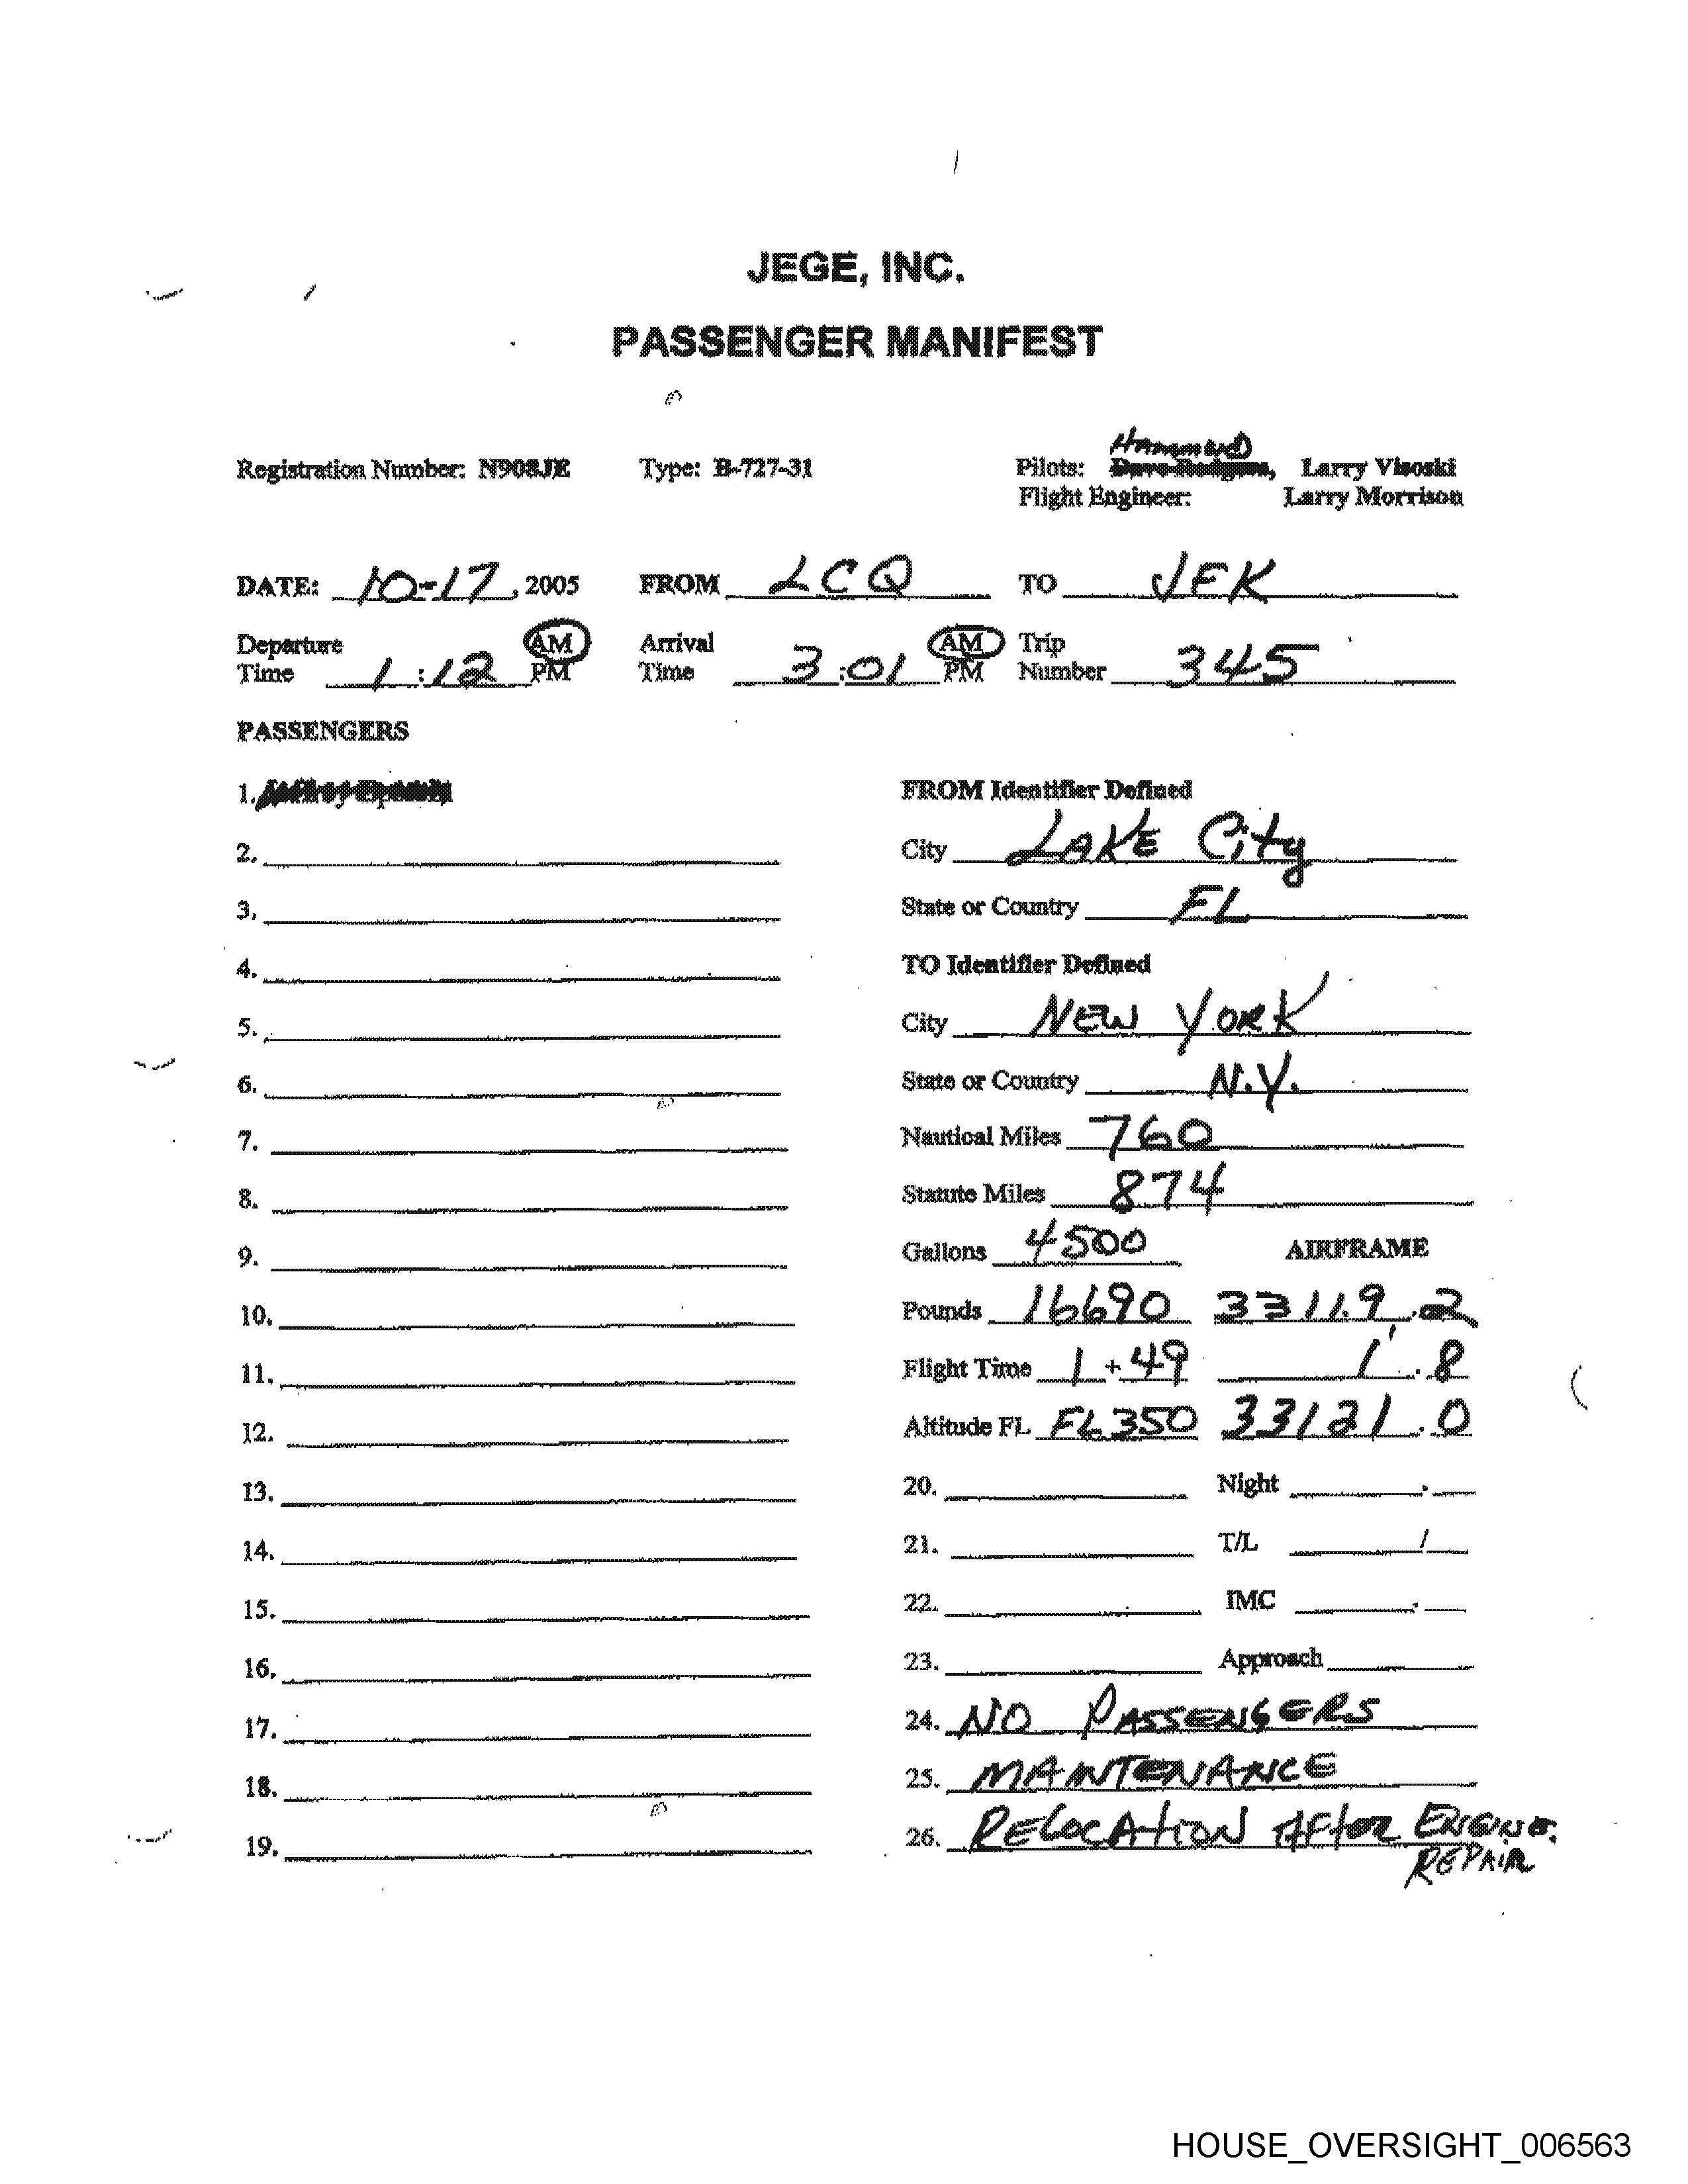 JEGE, INC.
PASSENGER MANIFEST
Hammond
Registration Number: N908JE Type: B-727-31 Pilots: Dave Rodgers, Larry Visoski
Flight Engineer: Larry Morrison
DATE: 10-17, 2005 FROM LCQ TO JFK
Departure Time 1:12 AM PM Arrival Time 3:01 AM PM Trip Number 345
PASSENGERS
1. Jeffrey Epstein
FROM Identifier Defined
2.
City LAKE City
3.
State or Country FL
4.
TO Identifier Defined
5.
City NEW YORK
6.
State or Country N.Y.
7.
Nautical Miles 760
8.
Statute Miles 874
9.
Gallons 4500 AIRFRAME
10.
Pounds 16690 33119.2
11.
Flight Time 1+49 1.8
12.
Altitude FL FL350 33121.0
13.
20. Night .
14.
21. T/L /
15.
22. IMC .
16.
23. Approach
17.
24. NO PASSENGERS
18.
25. MAINTENANCE
19.
26. RELOCATION AFTER ENGINE
REPAIR
HOUSE_OVERSIGHT_006563